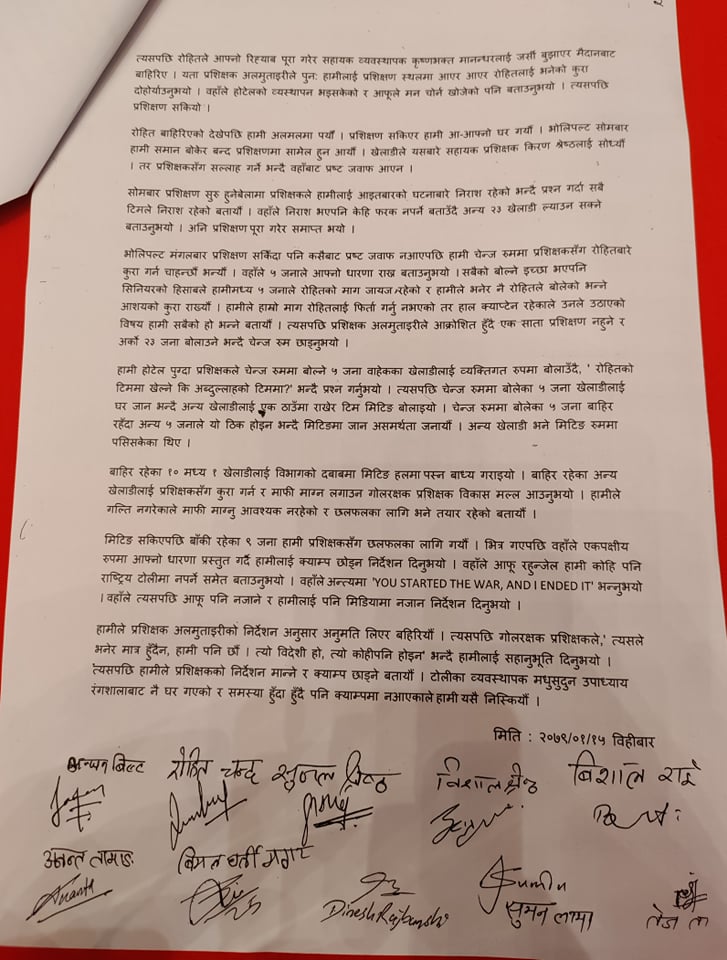 त्यसपछि रोहितले आफ्नो रिह्याब पूरा गरेर सहायक व्यवस्थापक कृष्णभक्त मानन्धरलाई जर्सी बुझाएर मैदानबाट
बाहिरिए । यता प्रशिक्षक अलमुताइरीले पुन: हामीलाई प्रशिक्षण स्थलमा आएर आएर रोहितलाई भनेको कुरा
दोहोर्याउनुभयो । वहाँले होटेलको व्यवस्थापन भइसकेको र आफूले मन चोर्न खोजेको पनि बताउनुभयो । त्यसपछि
प्रशिक्षण सकियो ।
रोहित बाहिरिएको देखेपछि हामी अलमलमा पर्यौं । प्रशिक्षण सकिएर हामी आ-आफ्नो घर गयौं । भोलिपल्ट सोमबार
हामी समान बोकेर बन्द प्रशिक्षणमा सामेल हुन आयौं । खेलाडीले यसबारे सहायक प्रशिक्षक किरण श्रेष्ठलाई सोध्यौं
। तर प्रशिक्षकसँग सल्लाह गर्ने भन्दै वहाँबाट प्रष्ट जवाफ आएन ।
सोमबार प्रशिक्षण सुरु हुनेबेलामा प्रशिक्षकले हामीलाई आइतबारको घटनाबारे निराश रहेको भन्दै प्रश्न गर्दा सबै
टिमले निराश रहेको बतायौं । वहाँले निराश भएपनि केहि फरक नपर्ने बताउँदै अन्य २३ खेलाडी ल्याउन सक्ने
बताउनुभयो । अनि प्रशिक्षण पूरा गरेर समाप्त भयो ।
भोलिपल्ट मंगलबार प्रशिक्षण सकिँदा पनि कसैबाट प्रष्ट जवाफ नआएपछि हामी चेन्ज रुममा प्रशिक्षकसँग रोहितबारे
कुरा गर्न चाहन्छौं भन्यौं । वहाँले ५ जनाले आफ्नो धारणा राख्न बताउनुभयो । सबैको बोल्ने इच्छा भएपनि
सिनियरको हिसाबले हामीमध्य ५ जनाले रोहितको माग जायज रहेको र हामीले भनेर नै रोहितले बोलेको भन्ने
आशयको कुरा राख्यौं । हामीले हाम्रो माग रोहितलाई फिर्ता गर्नु नभएको तर हाल क्याप्टेन रहेकाले उनले उठाएको
विषय हामी सबैको हो भन्ने बतायौं । त्यसपछि प्रशिक्षक अलमुताइरीले आक्रोशित हुँदै एक साता प्रशिक्षण नहुने र
अर्को २३ जना बोलाउने भन्दै चेन्ज रुम छाड्नुभयो ।
हामी होटेल पुग्दा प्रशिक्षकले चेन्ज रुममा बोल्ने ५ जना वाहेकका खेलाडीलाई व्यक्तिगत रुपमा बोलाउँदै, ' रोहितको
टिममा खेल्ने कि अब्दुल्लाहको टिममा?' भन्दै प्रश्न गर्नुभयो । त्यसपछि चेन्ज रुममा बोलेका ५ जना खेलाडीलाई
घर जान भन्दै अन्य खेलाडीलाई एक ठाउँमा राखेर टिम मिटिङ बोलाइयो । चेन्ज रुममा बोलेका ५ जना बाहिर
रहँदा अन्य ५ जनाले यो ठिक होइन भन्दै मिटिङमा जान असमर्थता जनायौं । अन्य खेलाडी भने मिटिङ रुममा
पसिसकेका थिए ।
बाहिर रहेका १० मध्य १ खेलाडीलाई विभागको दबाबमा मिटिङ हलमा पस्न बाध्य गराइयो । बाहिर रहेका अन्य
खेलाडीलाई प्रशिक्षकसँग कुरा गर्न र माफी माग्न लगाउन गोलरक्षक प्रशिक्षक विकास मल्ल आउनुभयो । हामीले
गल्ति नगरेकाले माफी माग्नु आवश्यक नरहेको र छलफलका लागि भने तयार रहेको बतायौं ।
मिटिङ सकिएपछि बाँकी रहेका ९ जना हामी प्रशिक्षकसँग छलफलका लागि गयौं । भित्र गएपछि वहाँले एकपक्षीय
रुपमा आफ्नो धारणा प्रस्तुत गर्दै हामीलाई क्याम्प छोड्न निर्देशन दिनुभयो । वहाँले आफू रहुन्जेल हामी कोहि पनि
राष्ट्रिय टोलीमा नपर्ने समेत बताउनुभयो । वहाँले अन्त्यमा 'YOU STARTED THE WAR, AND I ENDED IT' भन्नुभयो
। वहाँले त्यसपछि आफू पनि नजाने र हामीलाई पनि मिडियामा नजान निर्देशन दिनुभयो ।
हामीले प्रशिक्षक अलमुताइरीको निर्देशन अनुसार अनुमति लिएर बहिरियौं । त्यसपछि गोलरक्षक प्रशिक्षकले,' त्यसले
भनेर मात्र हुँदैन, हामी पनि छौं । त्यो विदेशी हो, त्यो कोहीपनि होइन' भन्दै हामीलाई सहानुभूति दिनुभयो ।
त्यसपछि हामीले प्रशिक्षकको निर्देशन मान्ने र क्याम्प छाड्ने बतायौं । टोलीका व्यवस्थापक मधुसुदुन उपाध्याय
रंगशालाबाट नै घर गएको र समस्या हुँदा हुँदै पनि क्याम्पमा नआएकाले हामी यसै निस्कियौं ।
मिति : २०७९/०१/१५ विहीबार
अन्जन बिष्ट रोहित चन्द सुजल श्रेष्ठ विशाल श्रेष्ठ बिशाल राई
अनन्त तामाङ बिमल घर्ती मगर
Ananta Dinesh Rajbanshi सुमन लामा तेज ता